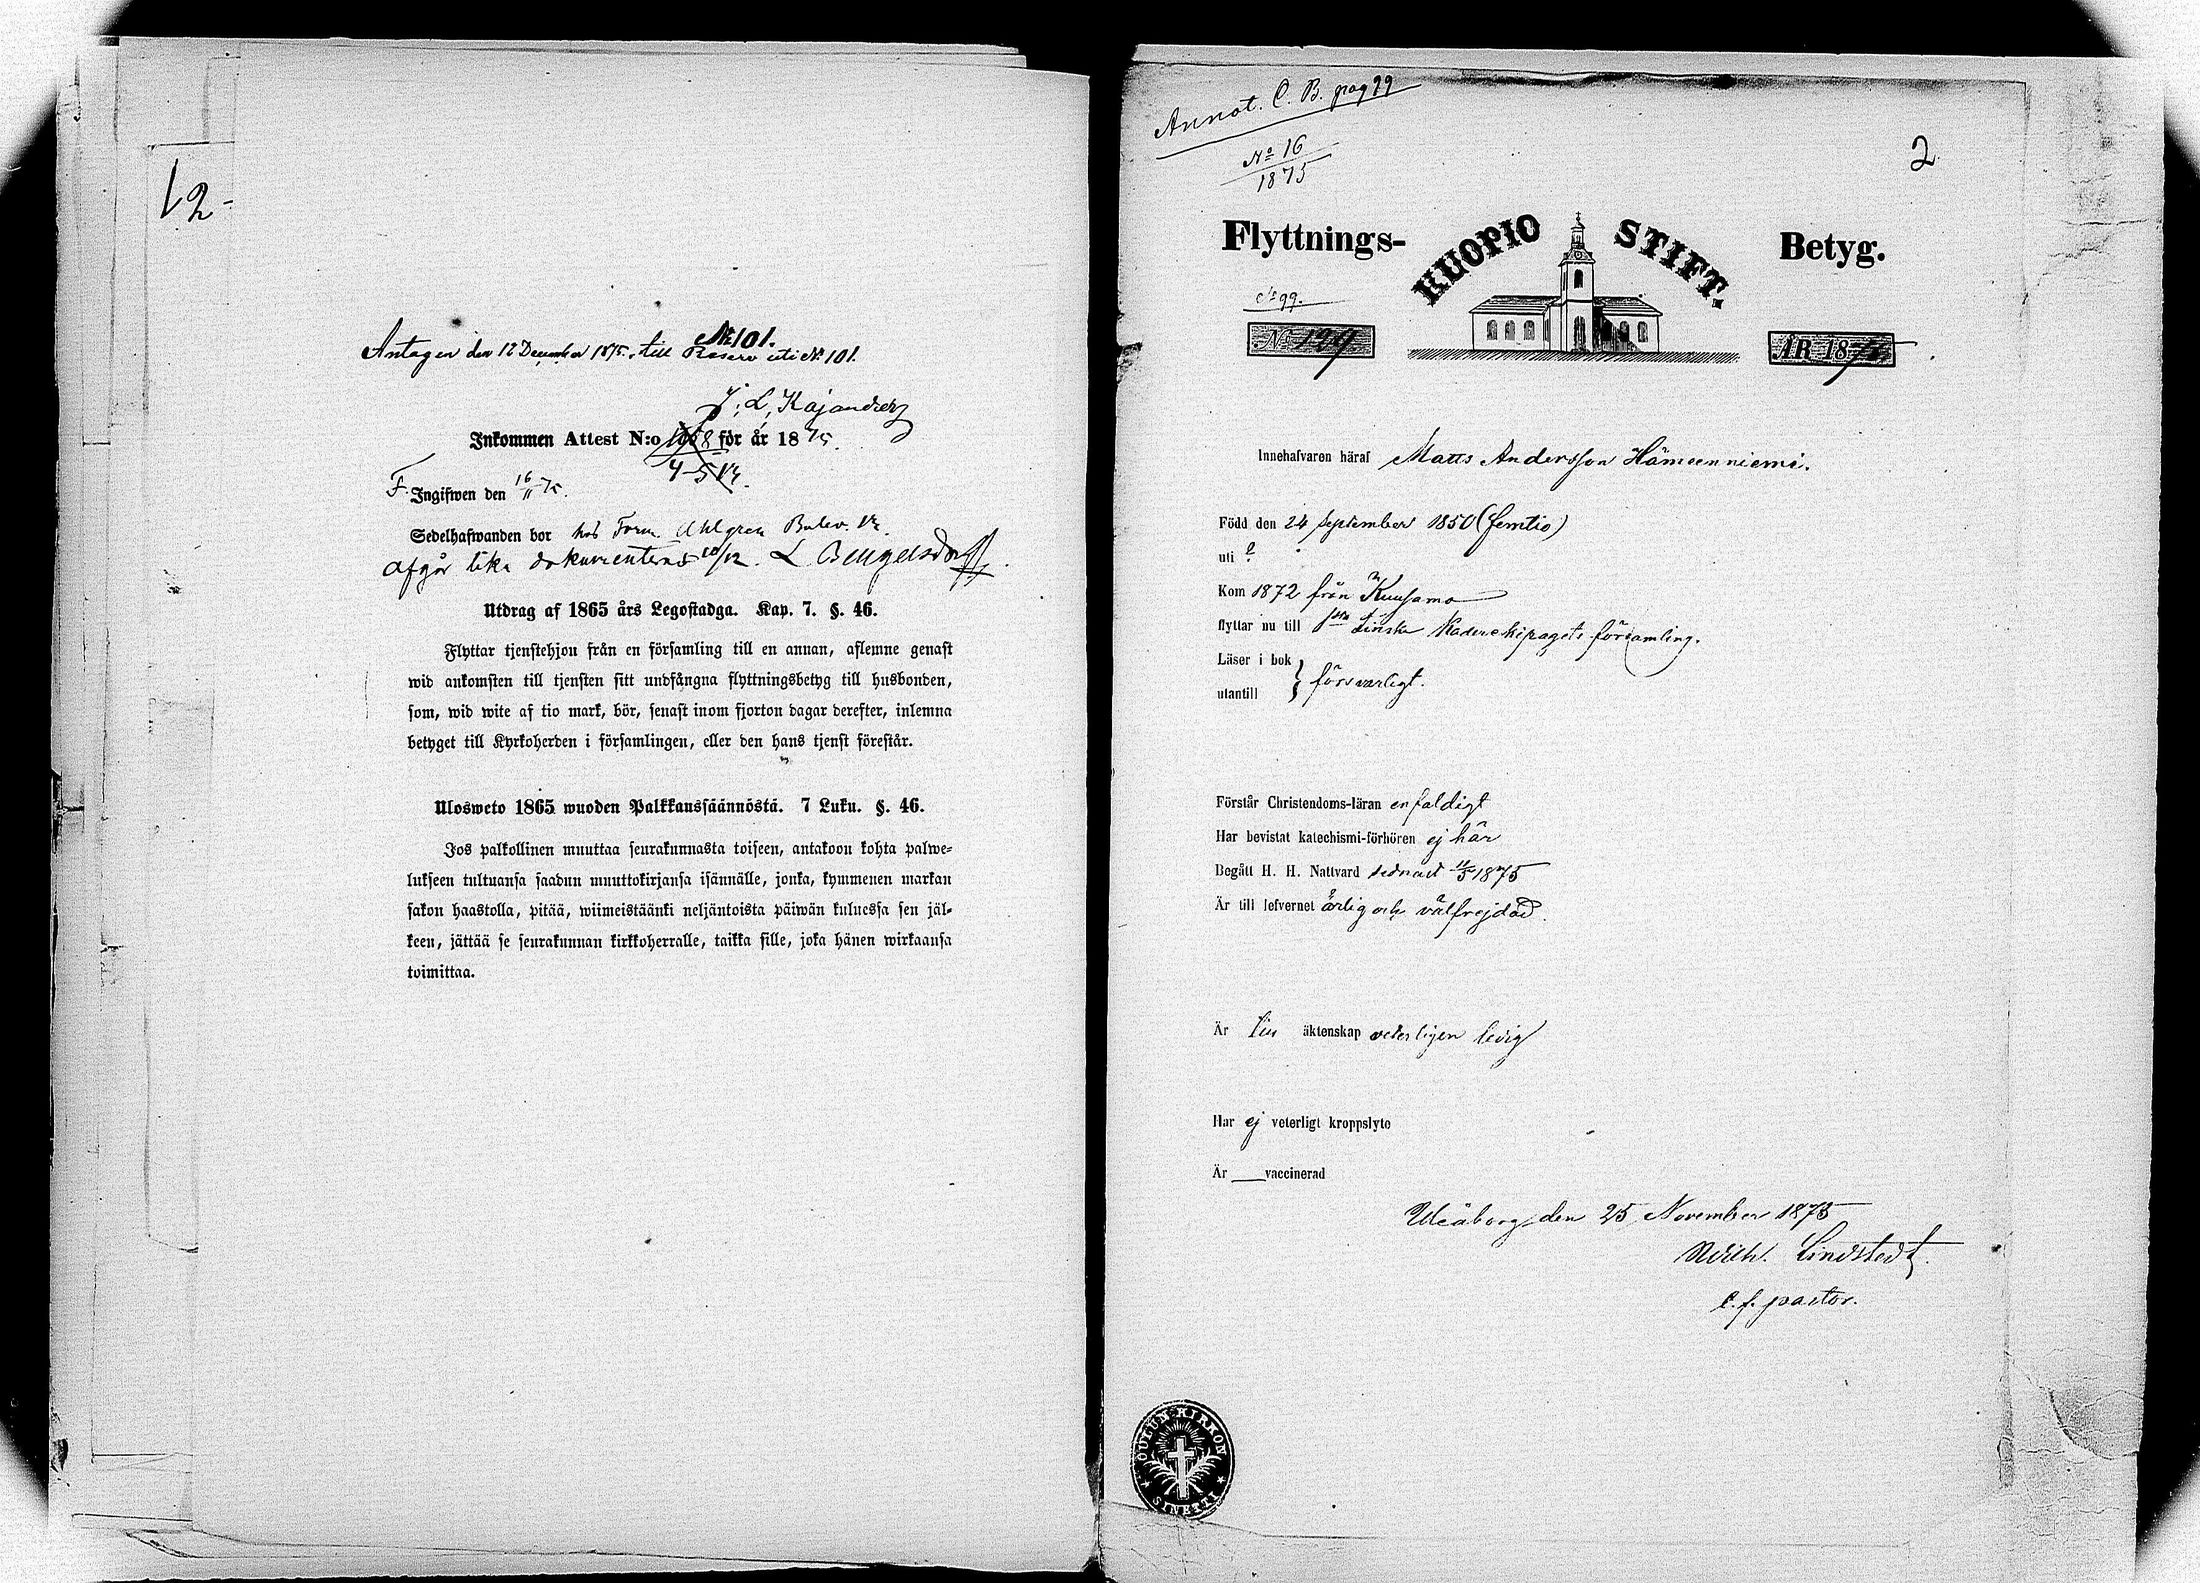 12-
Antagen den 12 December 1875. till Reserv uti № 101.
№ 101.
J. L. Kajander
Inkommen Attest N:o 1058 för år 1875.
F. Ingifwen den 16/11 75.
Sedelhafwanden bor hos Form. Ahlgren
afgår lika dokumenterad 10/12. L Bengelsdorff
Utdrag af 1865 års Legostadga. Kap. 7. §. 46.
Flyttar tjenstehjon från en församling till en annan, aflemne genast
wid ankomsten till tjensten sitt undfångna flyttningsbetyg till husbonden,
som, wid wite af tio mark, bör, senast inom fjorton dagar derefter, inlemna
betyget till Kyrkoherden i församlingen, eller den hans tjenst förestår.
Ulosweto 1865 wuoden Palkkaussäännöstä. 7 Luku. §. 46.
Jos palkollinen muuttaa seurakunnasta toiseen, antakoon kohta palwe-
lukseen tultuansa saadun muuttokirjansa isännälle, jonka, kymmenen markan
sakon haastolla, pitää, wiimeistäänki neljäntoista päiwän kuluessa sen jäl-
keen, jättää se seurakunnan kirkkoherralle, taikka sille, joka hänen wirkaansa
toimittaa.
Annot. C. B. pag 99
№ 16
1875
2
Flyttnings- KUOPIO STIFT. Betyg.
№ 99.
№ 129 ÅR 1875
Innehafvaren häraf Matts Andersson Hämeenniemi.
Född den 24 September 1850 (femtio)
uti ?
Kom 1872 från Kuusamo
flyttar nu till 1sta Finska Kaderekipagets församling.
Läser i bok
utantill } försvarligt.
Förstår Christendoms-läran enfaldigt
Har bevistat katechismi-förhören ej här
Begått H. H. Nattvard sednast 11/5 1875
Är till lefvernet ärlig och välfrejdad.
Är till äktenskap veterligen ledig
Har ej veterligt kroppslyte
Är vaccinerad
Uleåborg den 25 November 1875
Wilh. Lindstedt.
t. f. pastor.
OULUN KIRKON
SINETTI